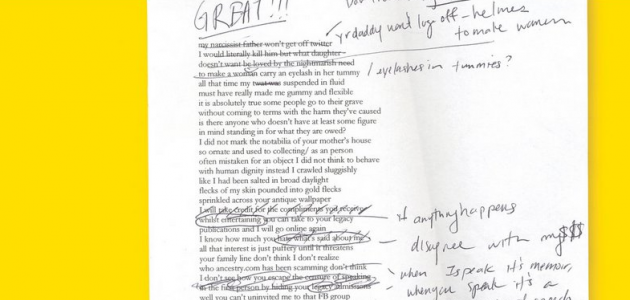 GREAT!!!
yr daddy won't log off - helmes
to make women
my narcissist father won't get off twitter
I would literally kill him but what daughter
doesn't want be loved by the nightmarish need
to make a woman carry an eyelash in her tummy
/ eyelashes in tummies?
all that time my twat was suspended in fluid
must have really made me gummy and flexible
it is absolutely true some people go to their grave
without coming to terms with the harm they've caused
is there anyone who doesn't have at least some figure
in mind standing in for what they are owed?
I did not mark the notabilia of your mother's house
so ornate and used to collecting/ as an person
often mistaken for an object I did not think to behave
with human dignity instead I crawled sluggishly
like I had been salted in broad daylight
flecks of my skin pounded into gold flecks
sprinkled across your antique wallpaper
I will take credit for the compliments you receive
whilst entertaining you can take to your legacy
if anything happens
publications and I will go online again
I know how much you hate what's said about me
disagree with my $$$
all that interest is just puttery until it threatens
your family line don't think I don't realize
who ancestry.com has been scamming don't think
when I speak it's memoir,
I don't see how you escape the censure of speaking
when you speak it's a
in the first person by hiding your legacy admissions
well you can't uninvited me to that FB group